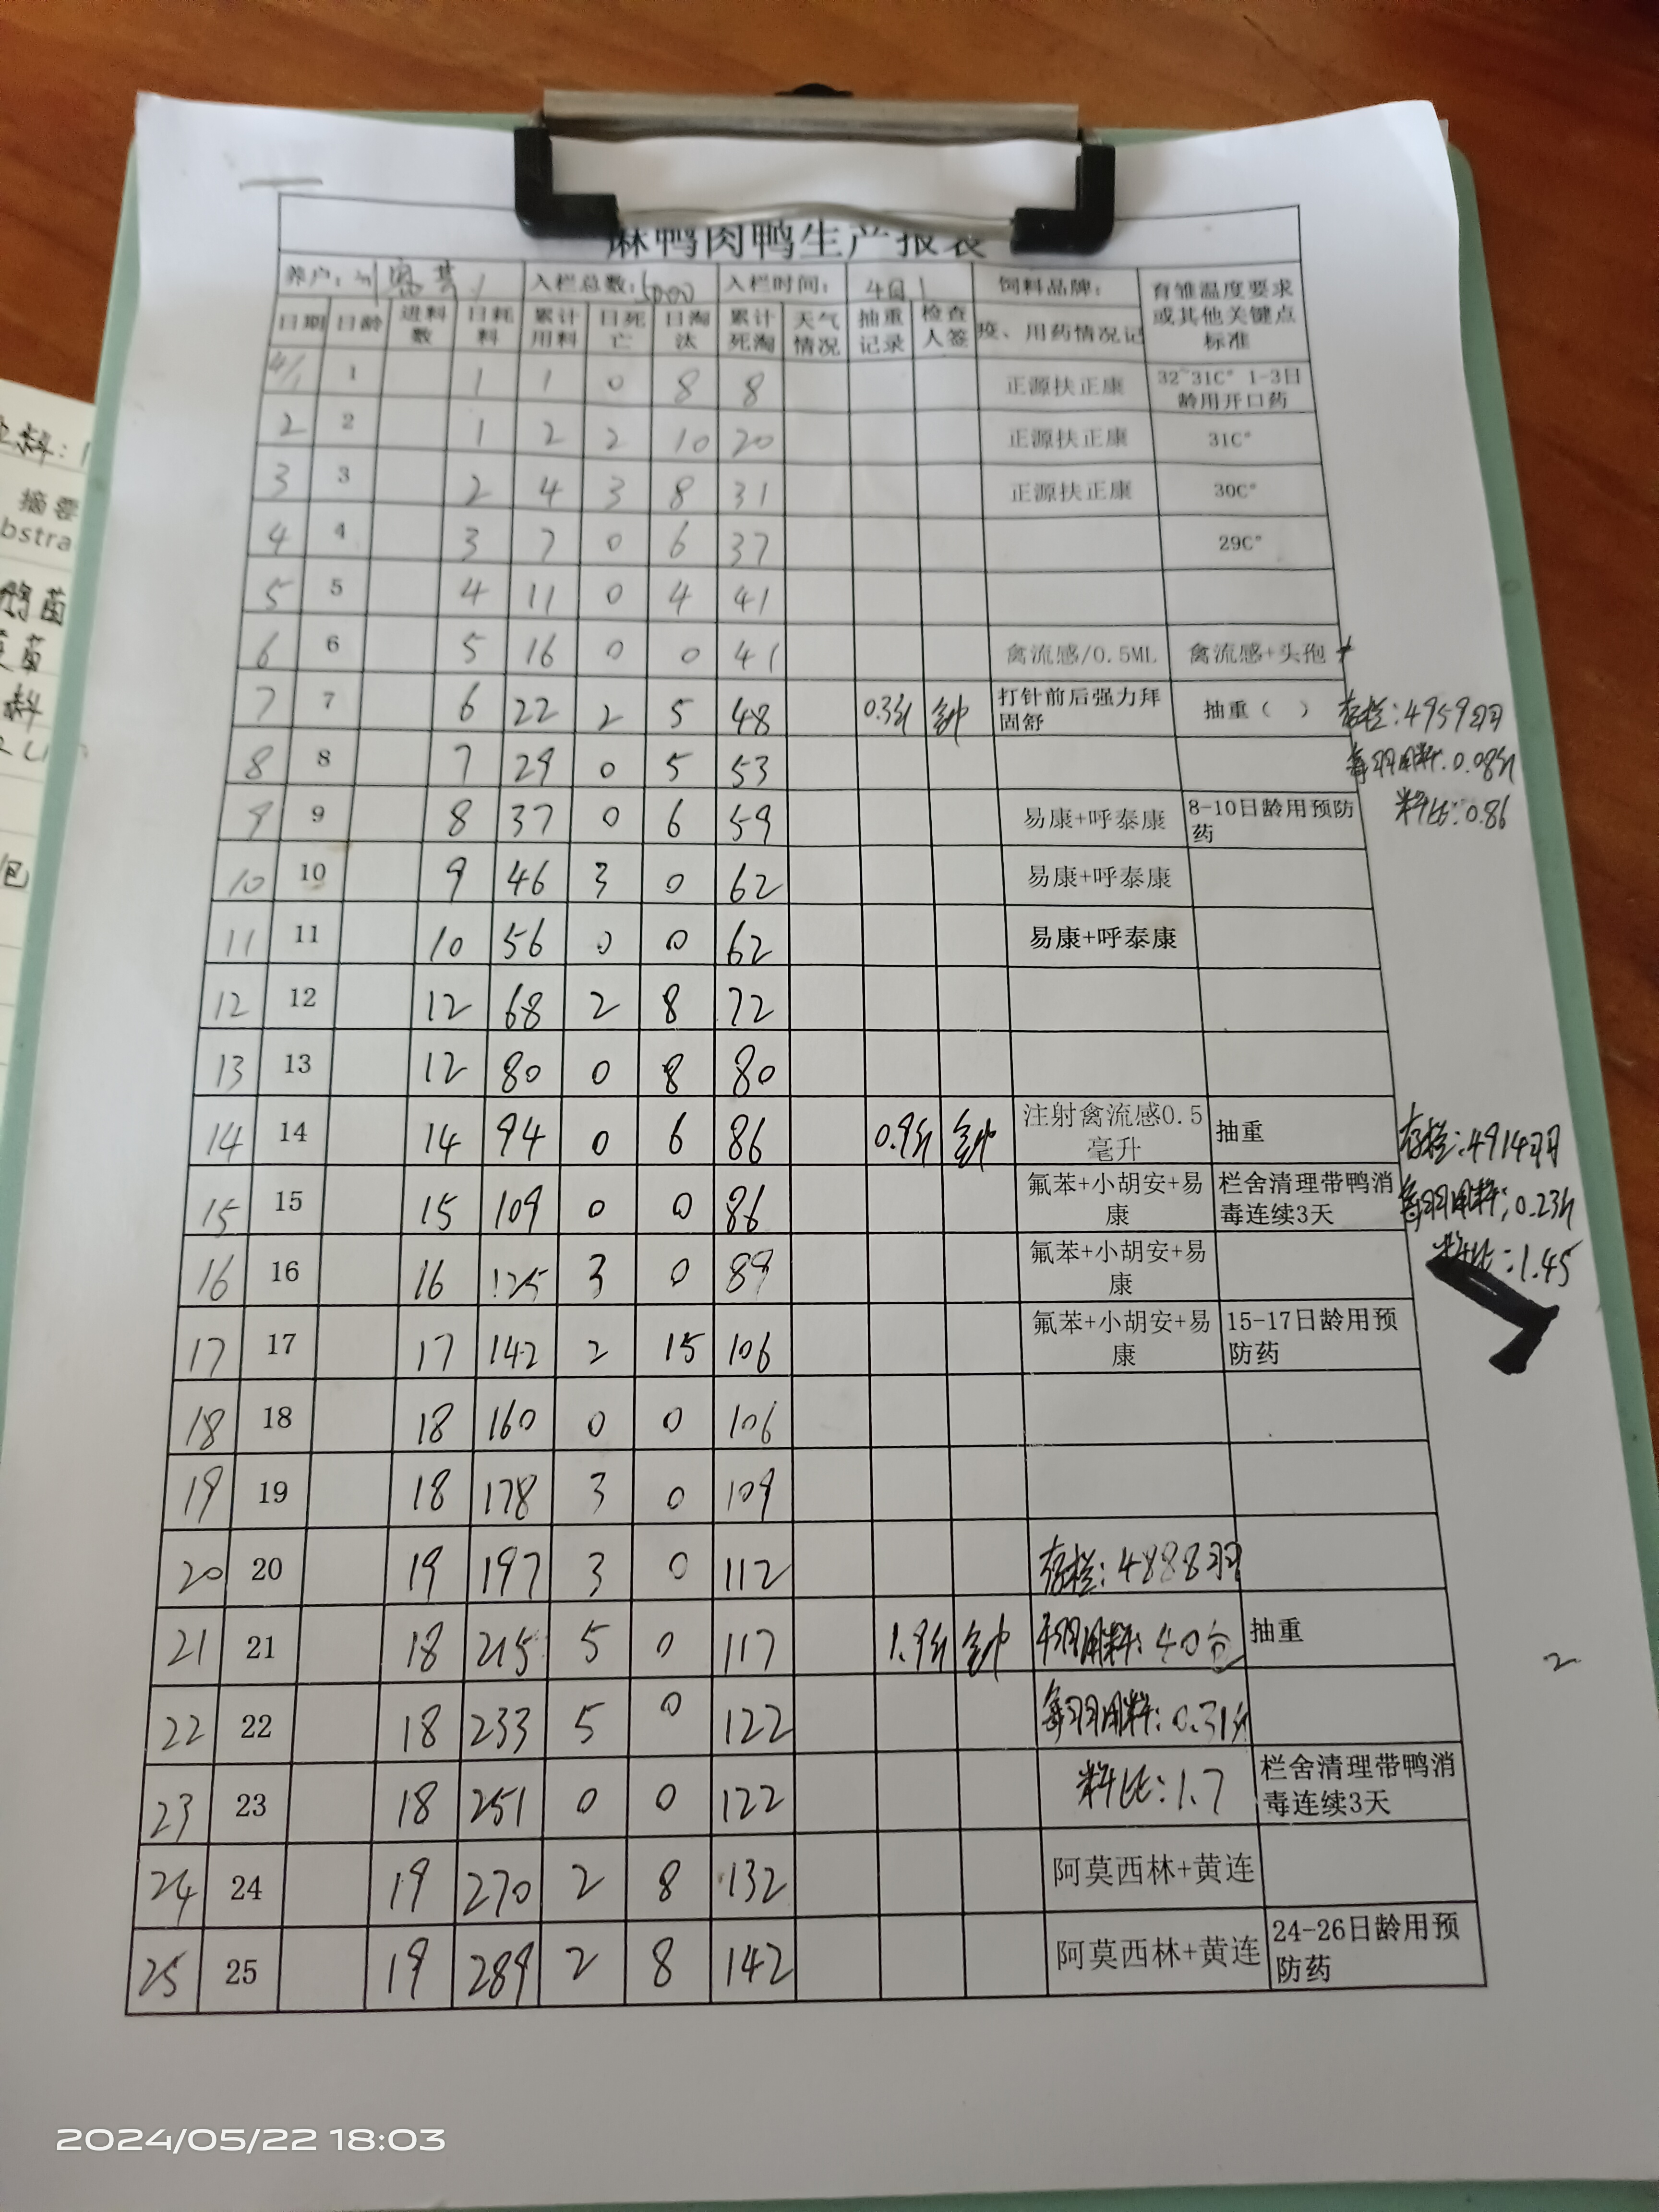 麻鸭肉鸭生产报表
养户： 入栏总数：5000 入栏时间： 4月1 饲料品牌： 育雏温度要求或其他关键点标准
日期 日龄 进料数 日耗料 累计用料 日死亡 日淘汰 累计死淘 天气情况 抽重记录 检查人签 疫、用药情况记
4/1 1 1 1 0 8 8 正源扶正康 32~31C° 1-3日龄用开口药
2 2 1 2 2 10 20 正源扶正康 31C°
3 3 2 4 3 8 31 正源扶正康 30C°
4 4 3 7 0 6 37 29C°
5 5 4 11 0 4 41
6 6 5 16 0 0 41 禽流感/0.5ML 禽流感+头孢
7 7 6 22 2 5 48 0.3斤 打针前后强力拜固舒 抽重（ ） 存栏：4959羽
8 8 7 29 0 5 53 每羽用料：0.08斤
9 9 8 37 0 6 59 易康+呼泰康 8-10日龄用预防药 料比：0.86
10 10 9 46 3 0 62 易康+呼泰康
11 11 10 56 0 0 62 易康+呼泰康
12 12 12 68 2 8 72
13 13 12 80 0 8 80
14 14 14 94 0 6 86 0.9斤 注射禽流感0.5毫升 抽重 存栏：4914羽
15 15 15 109 0 0 86 氟苯+小胡安+易康 栏舍清理带鸭消毒连续3天 每羽用料：0.23斤
16 16 16 125 3 0 89 氟苯+小胡安+易康 料比：1.45
17 17 17 142 2 15 106 氟苯+小胡安+易康 15-17日龄用预防药
18 18 18 160 0 0 106
19 19 18 178 3 0 109
20 20 19 197 3 0 112 存栏：4888羽
21 21 18 215 5 0 117 1.9斤 用料：40包 抽重 2
22 22 18 233 5 0 122 每羽用料：0.31斤
23 23 18 251 0 0 122 料比：1.7 栏舍清理带鸭消毒连续3天
24 24 19 270 2 8 132 阿莫西林+黄连
25 25 19 289 2 8 142 阿莫西林+黄连 24-26日龄用预防药
摘要
2024/05/22 18:03